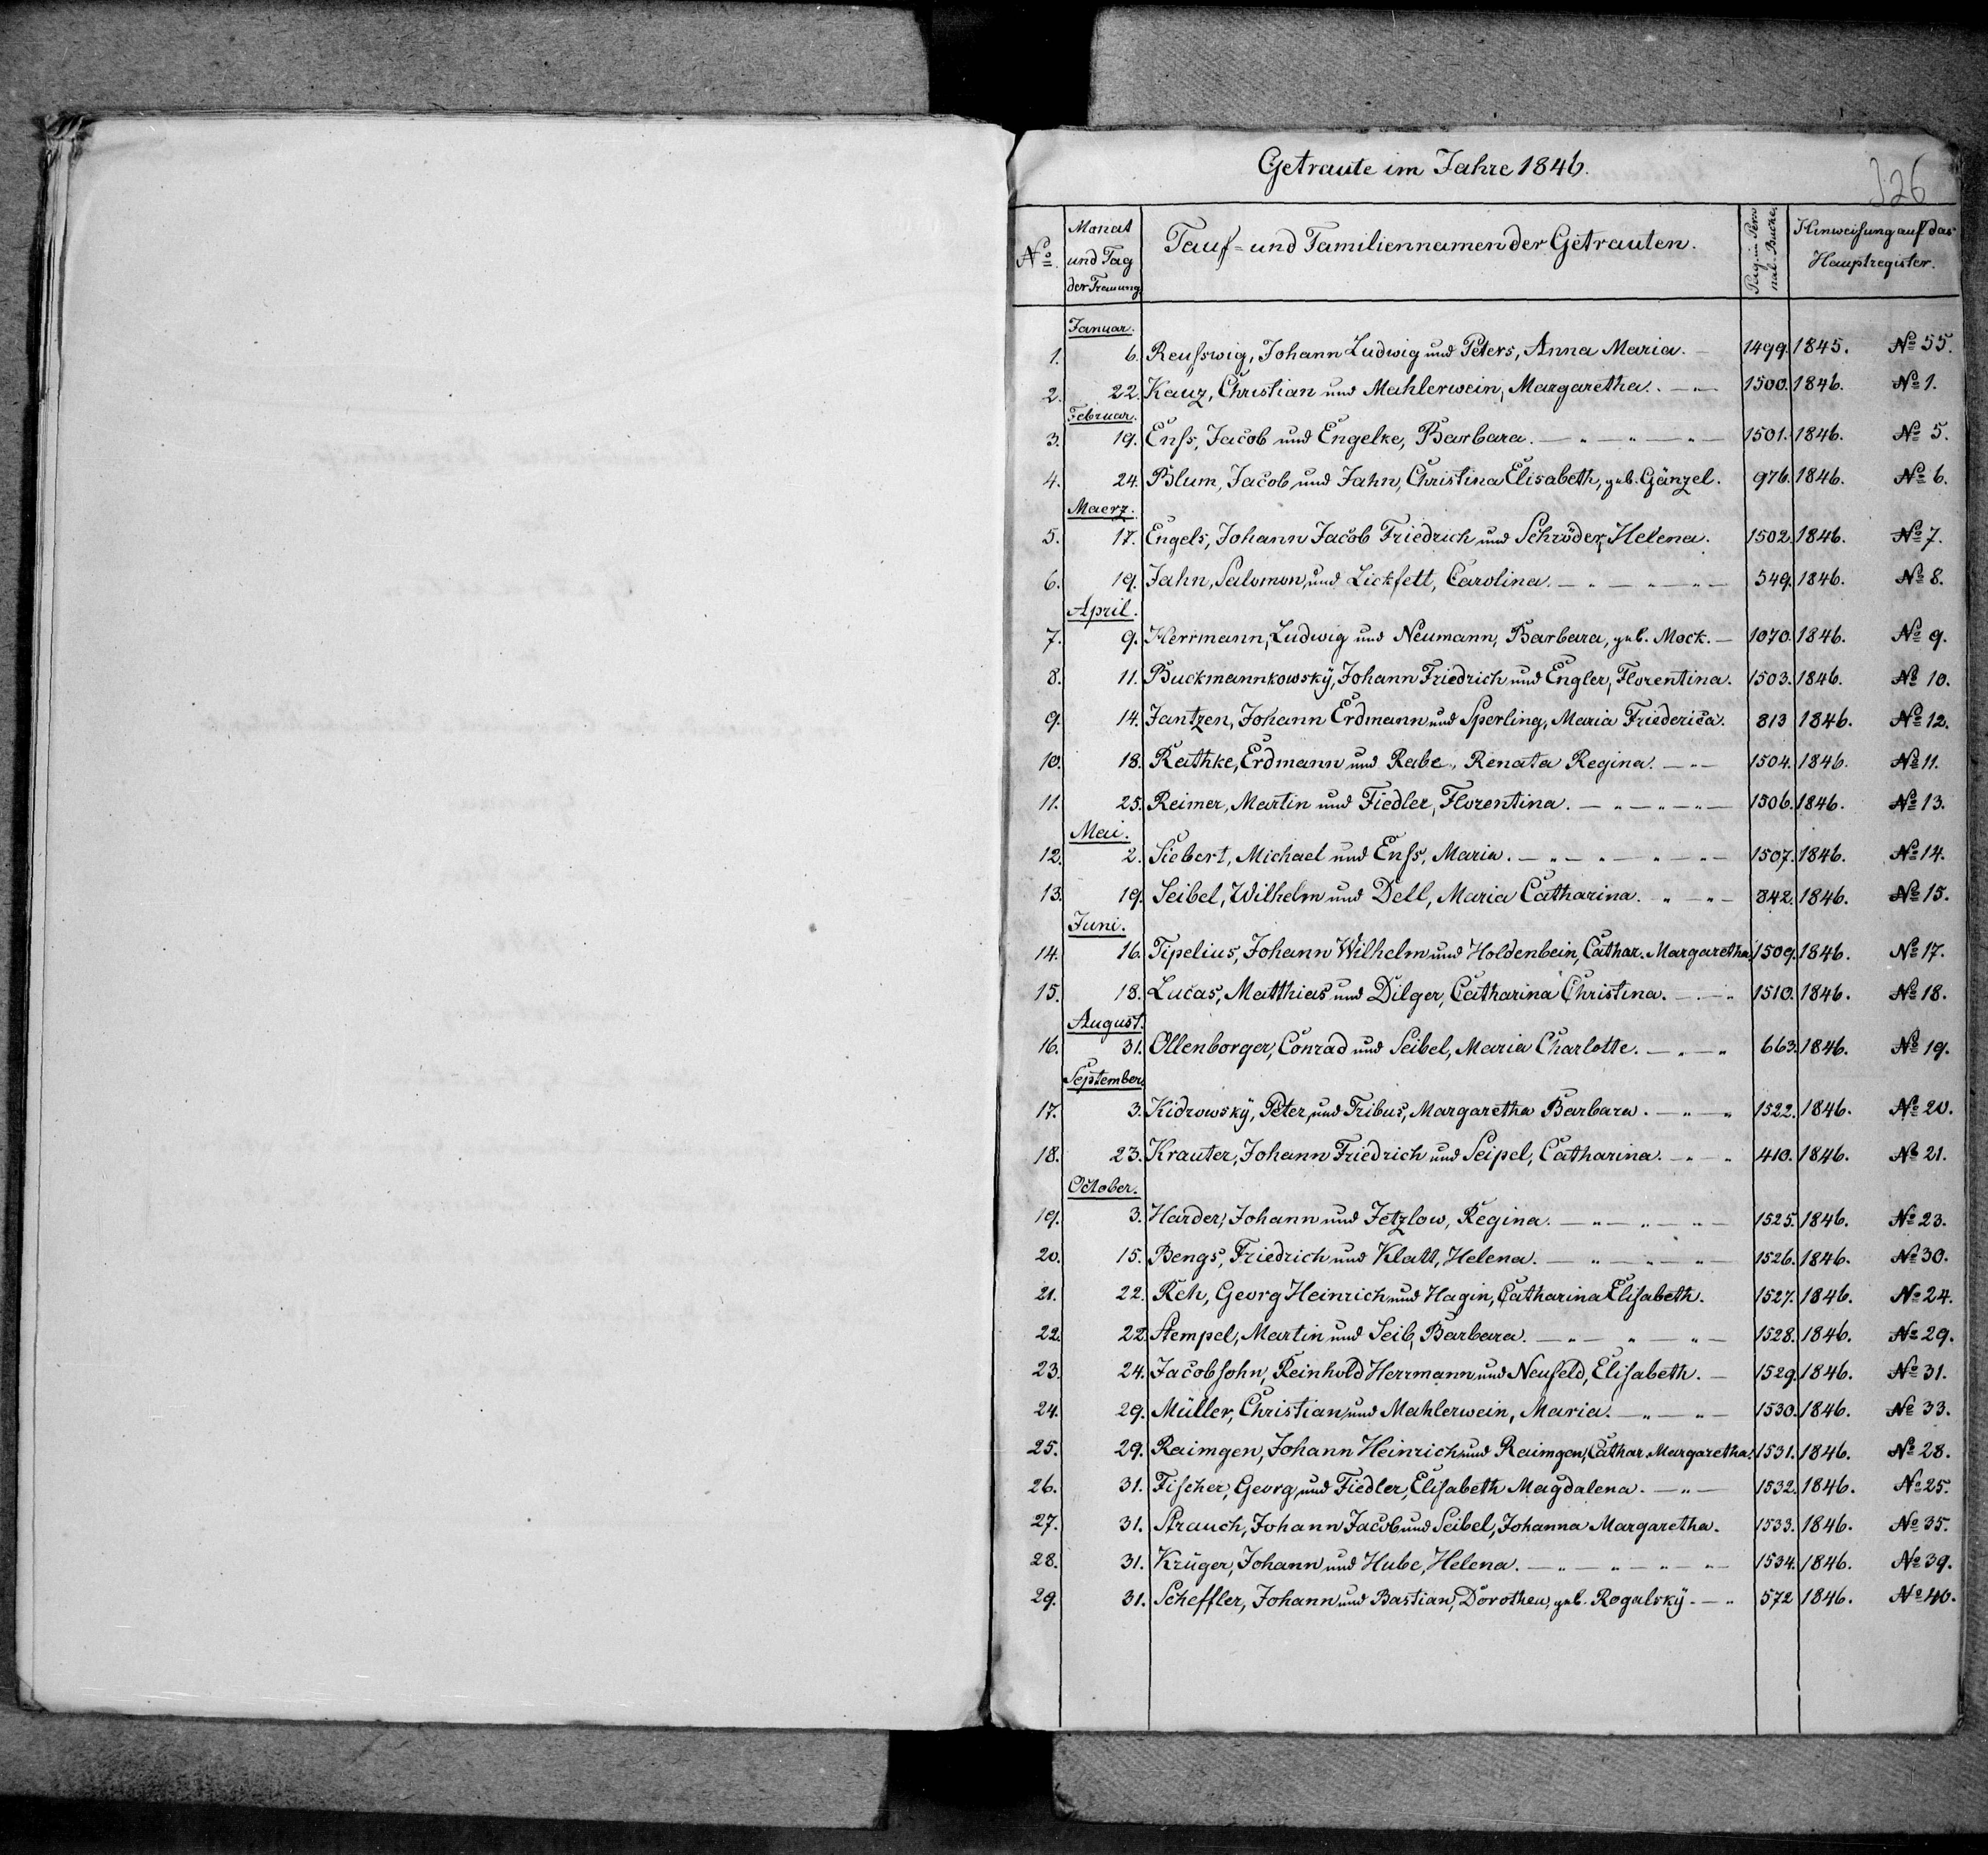 Getraute im Jahre 1846.
126
No. Monat und Tag der Trauung. Tauf- und Familiennamen der Getrauten. Pag. im Perso nal-Buche. Hinweisung auf das Hauptregister.
Januar.
1. 6. Reußwig, Johann Ludwig und Peters, Anna Maria. — 1499. 1845. No 55.
2. 22. Kauz, Christian und Mahlerwein, Margaretha. — " — 1500. 1846. No 1.
Februar.
3. 19. Enß, Jacob und Engelke, Barbara. — " — " — " — 1501. 1846. No 5.
4. 24. Blum, Jacob und Jahn, Christina Elisabeth, geb. Gänzel. 976. 1846. No 6.
Maerz.
5. 17. Engels, Johann Jacob Friedrich und Schröder, Helena. 1502. 1846. No 7.
6. 19. Jahn, Salomon, und Lickfett, Carolina. — " — " — " — 549. 1846. No 8.
April.
7. 9. Herrmann, Ludwig und Neumann, Barbara, geb. Mock. — 1070. 1846. No 9.
8. 11. Buckmannkowskÿ, Johann Friedrich und Engler, Florentina. 1503. 1846. No 10.
9. 14. Jantzen, Johann Erdmann und Sperling, Maria Friederica. 813 1846. No 12.
10. 18. Rathke, Erdmann und Rabe, Renata Regina. — " — 1504. 1846. No 11.
11. 25. Reimer, Martin und Fiedler, Florentina. — " — " — " — 1506. 1846. No 13.
Mai.
12. 2. Siebert, Michael und Enß, Maria. — " — " — " — " — 1507. 1846. No 14.
13. 19. Seibel, Wilhelm und Dell, Maria Catharina. " — " — 842. 1846. No 15.
Juni.
14. 16. Tipelius, Johann Wilhelm und Holdenbein, Cathar. Margaretha. 1509. 1846. No 17.
15. 18. Lucas, Matthias und Dilger, Catharina Christina. — " — " 1510. 1846. No 18.
August.
16. 31. Ollenborger, Conrad und Seibel, Maria Charlotte. — " — " 663. 1846. No 19.
September.
17. 3. Kidrowskÿ, Peter, und Tribus, Margaretha Barbara. — " — " 1522. 1846. No 20.
18. 23. Krauter, Johann Friedrich und Seipel, Catharina. — " — " 410. 1846. No 21.
October.
19. 3. Harder, Johann und Jetzlow, Regina. — " — " — " — 1525. 1846. No 23.
20. 15. Bengs, Friedrich und Klatt, Helena. — " — " — " — 1526. 1846. No 30.
21. 22. Reh, Georg Heinrich und Hagin, Catharina Elisabeth. 1527. 1846. No 24.
22. 22. Stempel, Martin und Seib, Barbara. — " — " — " — 1528. 1846. No 29.
23. 24. Jacobsohn, Reinhold Herrmann und Neufeld, Elisabeth. — 1529. 1846. No 31.
24. 29. Müller, Christian, und Mahlerwein, Maria. — " — " — 1530. 1846. No 33.
25. 29. Raimgen, Johann Heinrich und Raimgen, Cathar. Margaretha. 1531. 1846. No 28.
26. 31. Fischer, Georg und Fiedler, Elisabeth Magdalena. — " — 1532. 1846. No 25.
27. 31. Strauch, Johann Jacob und Seibel, Johanna Margaretha. 1533. 1846. No 35.
28. 31. Krüger, Johann und Hube, Helena. — " — " — " — " — 1534. 1846. No 39.
29. 31. Scheffler, Johann und Bastian, Dorothea, geb. Rogalskÿ. — " 572 1846. No 40.